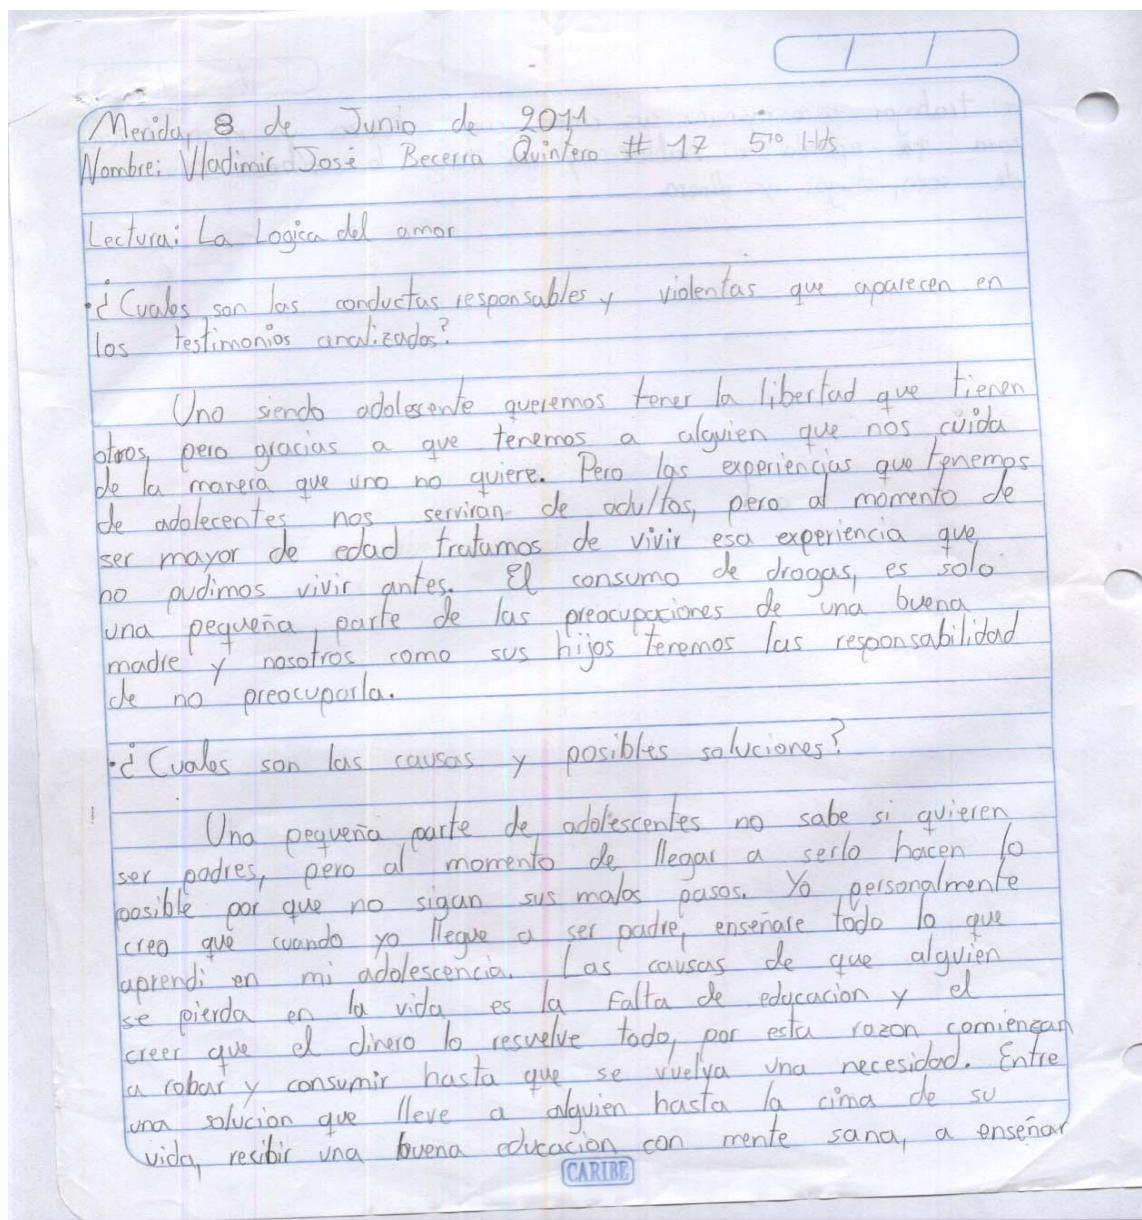 Merida, 8 de Junio de 2011
Nombre: Vladimir José Becerra Quintero # 17 5to Hds
Lectura: La Logica del amor
•¿Cuales son las conductas responsables y violentas que aparecen en
los testimonios analizados?
Uno siendo adolescente queremos tener la libertad que tienen
otros, pero gracias a que tenemos a alguien que nos cuida
de la manera que uno no quiere. Pero las experiencias que tenemos
de adolecentes nos serviran de adultos, pero al momento de
ser mayor de edad tratamos de vivir esa experiencia que
no pudimos vivir antes. El consumo de drogas, es solo
una pequeña parte de las preocupaciones de una buena
madre y nosotros como sus hijos tenemos las responsabilidad
de no preocuparla.
•¿Cuales son las causas y posibles soluciones?
Una pequeña parte de adolescentes no sabe si quieren
ser padres, pero al momento de llegar a serlo hacen lo
posible por que no sigan sus malos pasos. Yo personalmente
creo que cuando yo llegue a ser padre, enseñare todo lo que
aprendi en mi adolescencia. Las causas de que alguien
se pierda en la vida es la Falta de educacion y el
creer que el dinero lo resuelve todo, por esta razon comienzan
a robar y consumir hasta que se vuelva una necesidad. Entre
una solucion que lleve a alguien hasta la cima de su
vida, recibir una buena educacion con mente sana, a enseñar
CARIBE